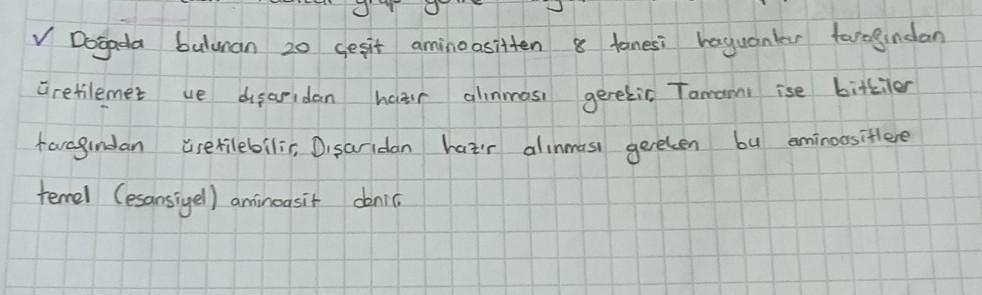 √ Doğada bulunan 20 çeşit aminoasitten 8 tanesi hayvanlar tarafından
üretilemez ve dışarıdan hazır alınması gerekir. Tamamı ise bitkiler
tarafından üretilebilir. Dışarıdan hazır alınması gereken bu aminoasitlere
temel (esansiyel) aminoasit denir.